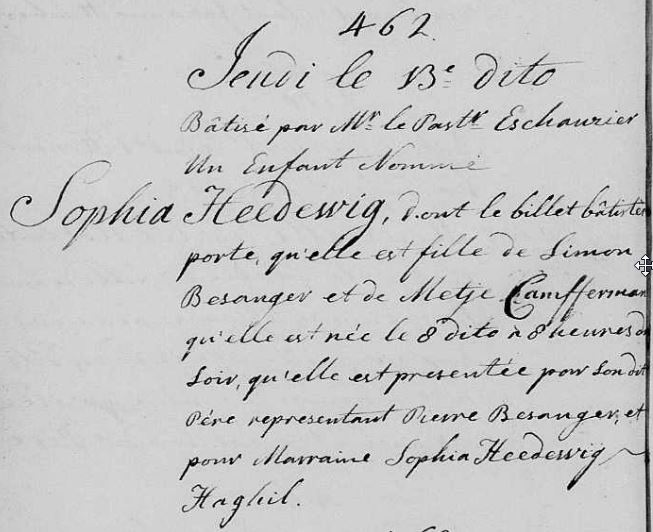 462.
Jeudi le 13e dito
Bâtisé par Mr le Pastr Eschauzier
Un Enfant Nommé
Sophia Heedewig, dont le billet bâtister
porte, qu'elle est fille de Simon
Besanger et de Metje Camfferman
qu'elle est née le 8 dito à 8 heures du
Soir, qu'elle est presentée pour son dit
Pére representant Pierre Besanger, et
pour Marraine Sophia Heedewig
Haghil.